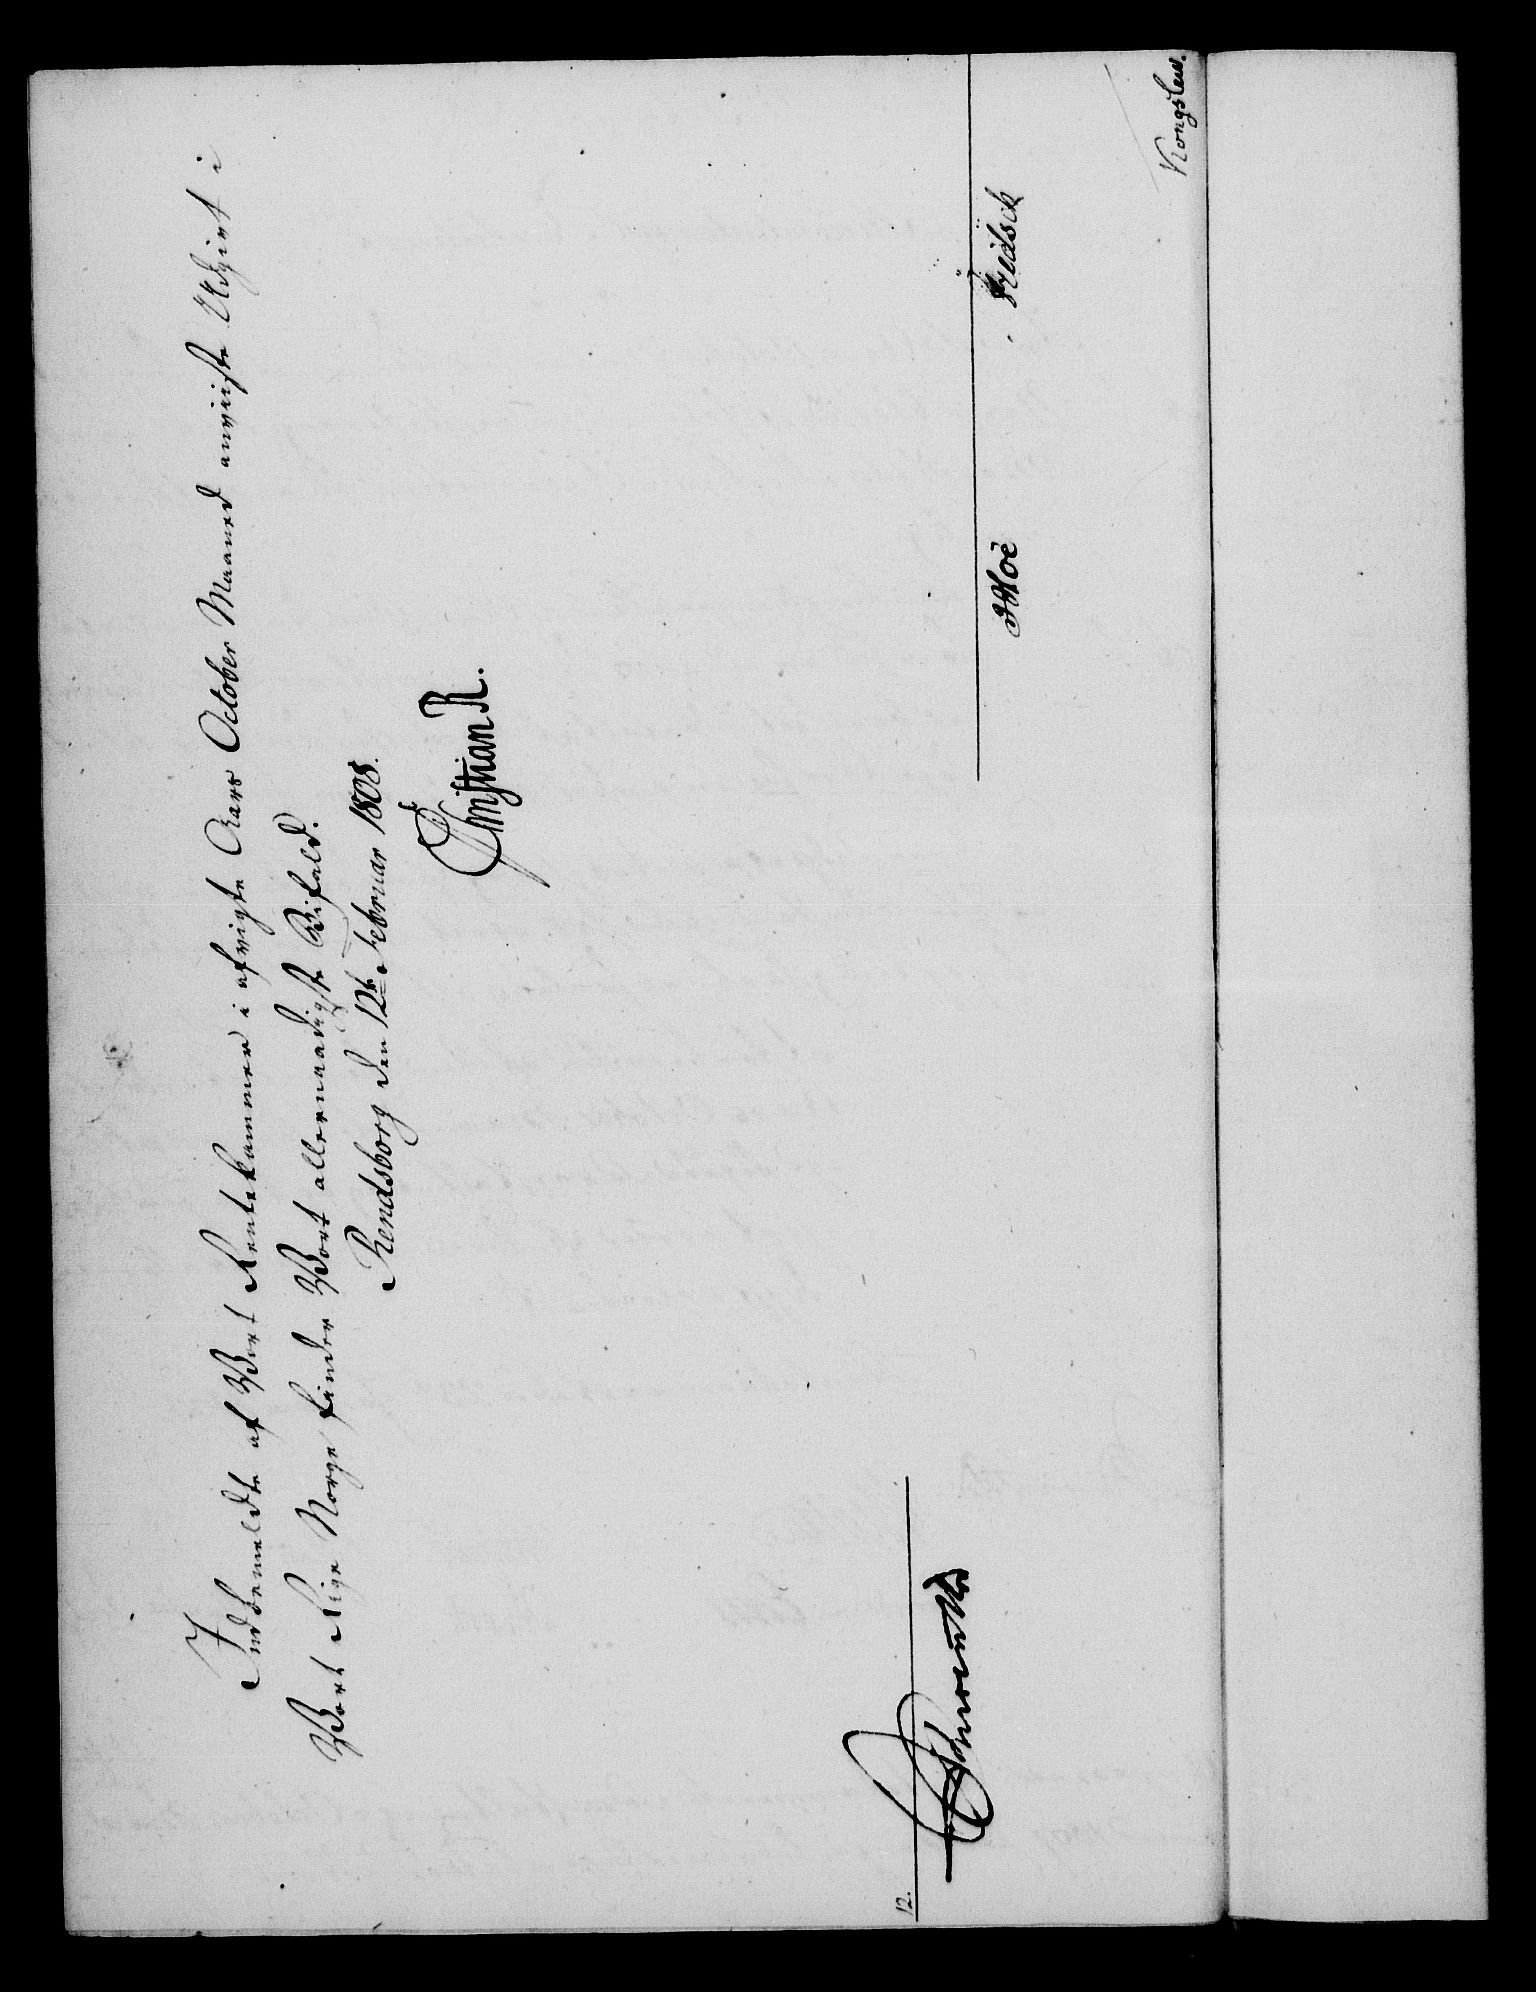 Indbemeldte af Vort Rentekammer i afvigte Aars October Maaned anviiste Udgivt i
Vort Rige Norge finder Vort allernaadigste Bifald.
Rendsborg den 12te Februar 1808.
Christian R.
12.
Moe
Kongslew.